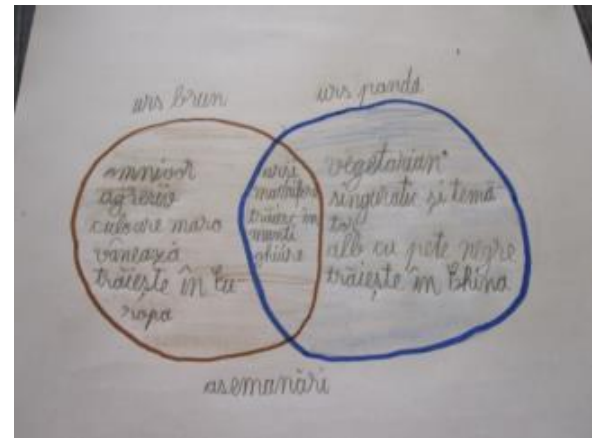 urs brun
urs panda
omnivor
agresiv
culoare maro
vânează
trăiește în Eu-
ropa
urși
mamifere
trăiesc în
munți
ghiare
vegetarian
singuratic și temă
tor
alb cu pete negre
trăiește în China
asemănări